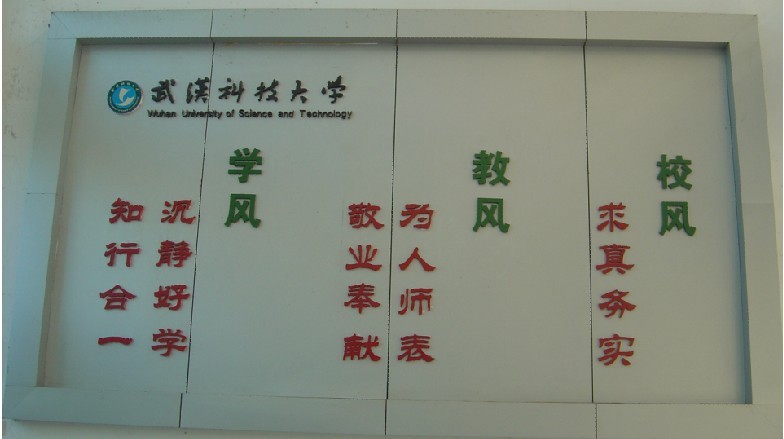 武漢科技大学
Wuhan University of Science and Technology
校风
求真务实
教风
为人师表
敬业奉献
学风
沉静好学
知行合一